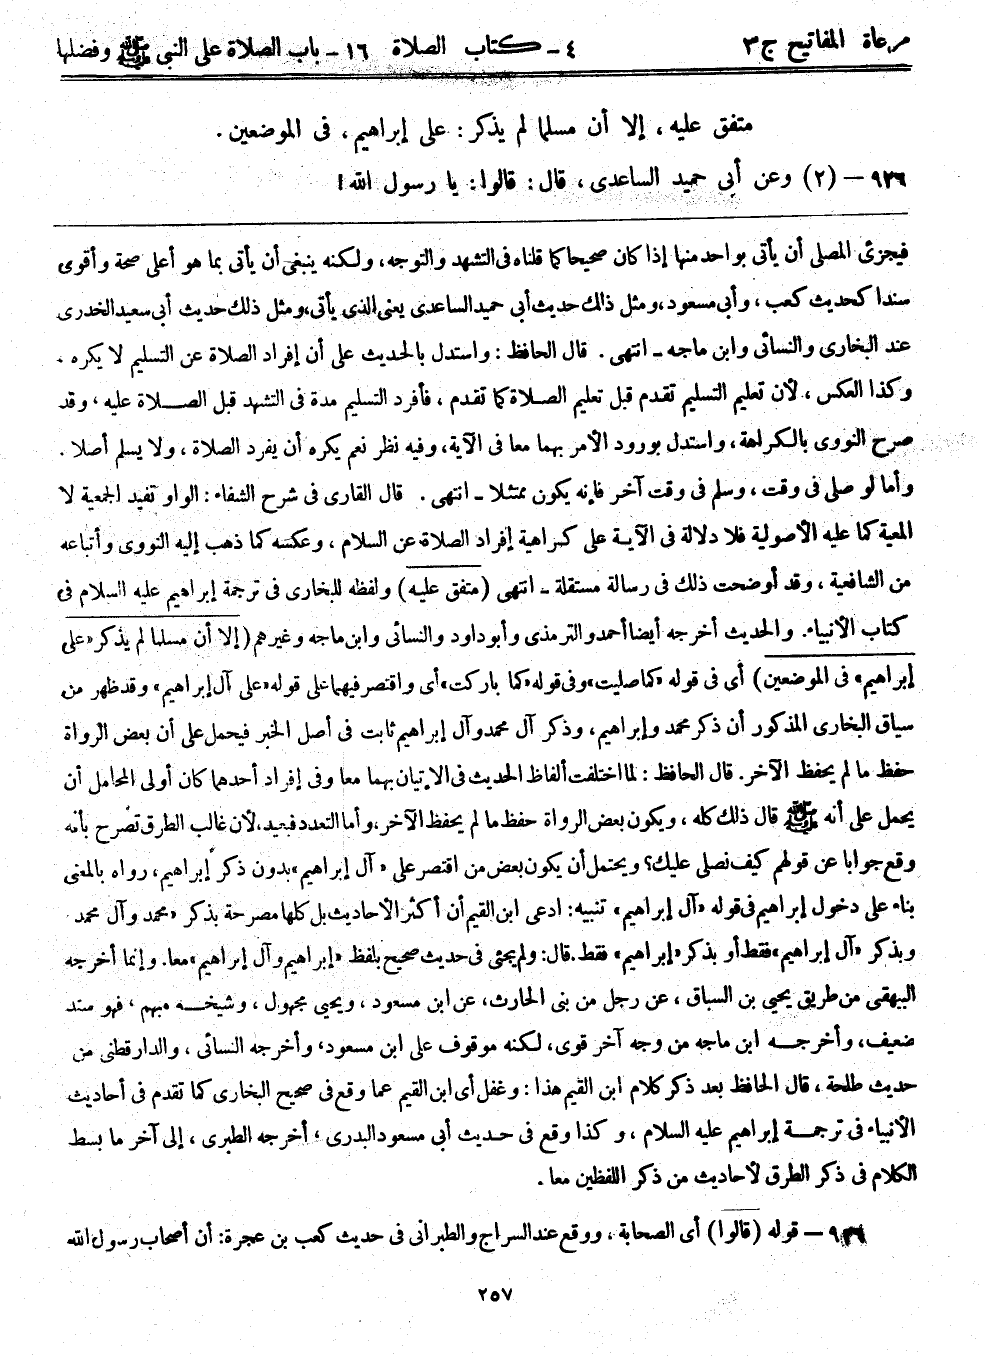 مرعاة المفاتيح ج ٣ ٤ - كتاب الصلاة ١٦ - باب الصلاة على النبي ﷺ وفضلها
متفق عليه ، إلا أن مسلما لم يذكر : على إبراهيم ، فى الموضعين .
٩٢٦ – (٢) وعن أبي حميد الساعدى ، قال : قالوا : يا رسول الله !
فيجزئ المصلى أن يأتى بواحد منها إذا كان صحيحا كما قلناه فى التشهد والتوجه ، ولكنه ينبغى أن يأتى بما هو أعلى صحة وأقوى
سندا كحديث كعب ، وأبى مسعود ، ومثل ذالك حديث أبي حميد الساعدى يعنى الذى يأتى ، ومثل ذلك حديث أبى سعيد الخدرى
عند البخارى والنسائى وابن ماجه ـ انتهى . قال الحافظ : واستدل بالحديث على أن إفراد الصلاة عن التسليم لا يكره .
وكذا العكس ، لأن تعليم التسليم تقدم قبل تعليم الصلاة كما تقدم ، فأفرد التسليم مدة فى التشهد قبل الصلاة عليه ، وقد
صرح النووى بالكراهة ، واستدل بورود الأمر بهما معا فى الآية ، وفيه نظر نعم يكره أن يفرد الصلاة ، ولا يسلم أصلا .
وأما لو صلى فى وقت ، وسلم فى وقت آخر فإنه يكون ممتثلا ـ انتهى . قال القارى فى شرح الشفاء : الواو تفيد الجمعية لا
المعية كما عليه الأصولية فلا دلالة فى الآية على كراهية إفراد الصلاة عن السلام ، وعكسه كما ذهب إليه النووى وأتباعه
من الشافعية ، وقد أوضحت ذلك فى رسالة مستقلة ـ انتهى (متفق عليه) ولفظه للبخارى فى ترجمة إبراهيم عليه السلام فى
كتاب الأنبياء. والحديث أخرجه أيضا أحمد والترمذى وأبو داود والنسائى وابن ماجه وغيرهم (إلا أن مسلما لم يذكر «على
إبراهيم» فى الموضعين) أى فى قوله «كما صليت» وفى قوله «كما باركت» أى واقتصر فيهما على قوله «على آل إبراهيم» وقد ظهر من
سياق البخارى المذكور أن ذكر محمد وإبراهيم ، وذكر آل محمد وآل إبراهيم ثابت فى أصل الخبر فيحمل على أن بعض الرواة
حفظ ما لم يحفظ الآخر. قال الحافظ : لما اختلفت ألفاظ الحديث فى الإتيان بهما معا وفى إفراد أحدهما كان أولى المحامل أن
يحمل على أنه ﷺ قال ذلك كله ، ويكون بعض الرواة حفظ ما لم يحفظ الآخر ، وأما التعدد فبعيد ، لأن غالب الطرق تصرح بأنه
وقع جوابا عن قولهم كيف نصلى عليك؟ ويحتمل أن يكون بعض من اقتصر على «آل إبراهيم» بدون ذكر إبراهيم، رواه بالمعنى
بناء على دخول إبراهيم فى قوله «آل إبراهيم» تنبيه: ادعى ابن القيم أن أكثر الأحاديث بل كلها مصرحة بذكر «محمد وآل محمد
وبذكر «آل إبراهيم» فقط أو بذكر «إبراهيم» فقط. قال: ولم يجئ فى حديث صحيح بلفظ «إبراهيم وآل إبراهيم» معا. وإنما أخرجه
البيهقى من طريق يحيى بن السباق ، عن رجل من بنى الحارث، عن ابن مسعود ، ويحيى مجهول ، وشيخه مبهم ، فهو سند
ضعيف، وأخرجه ابن ماجه من وجه آخر قوى، لكنه موقوف على ابن مسعود، وأخرجه النسائى ، والدارقطنى من
حديث طلحة ، قال الحافظ بعد ذكر كلام ابن القيم هذا : وغفل أى ابن القيم عما وقع فى صحيح البخارى كما تقدم فى أحاديث
الأنبياء فى ترجمة إبراهيم عليه السلام ، وكذا وقع فى حديث أبي مسعود البدرى ، أخرجه الطبرى ، إلى آخر ما بسط
الكلام فى ذكر الطرق لأحاديث من ذكر اللفظين معا .
٩٢٦ – قوله (قالوا) أى الصحابة ، ووقع عند السراج والطبرانى فى حديث كعب بن عجرة: أن أصحاب رسول الله
٢٥٧